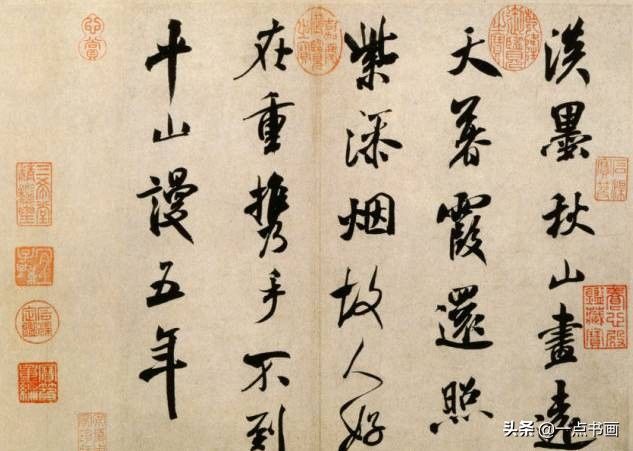 淡墨秋山畫遠
天暮霞還照
紫添烟故人好
在重携手不到
平山謾五年
头条 @一点书画